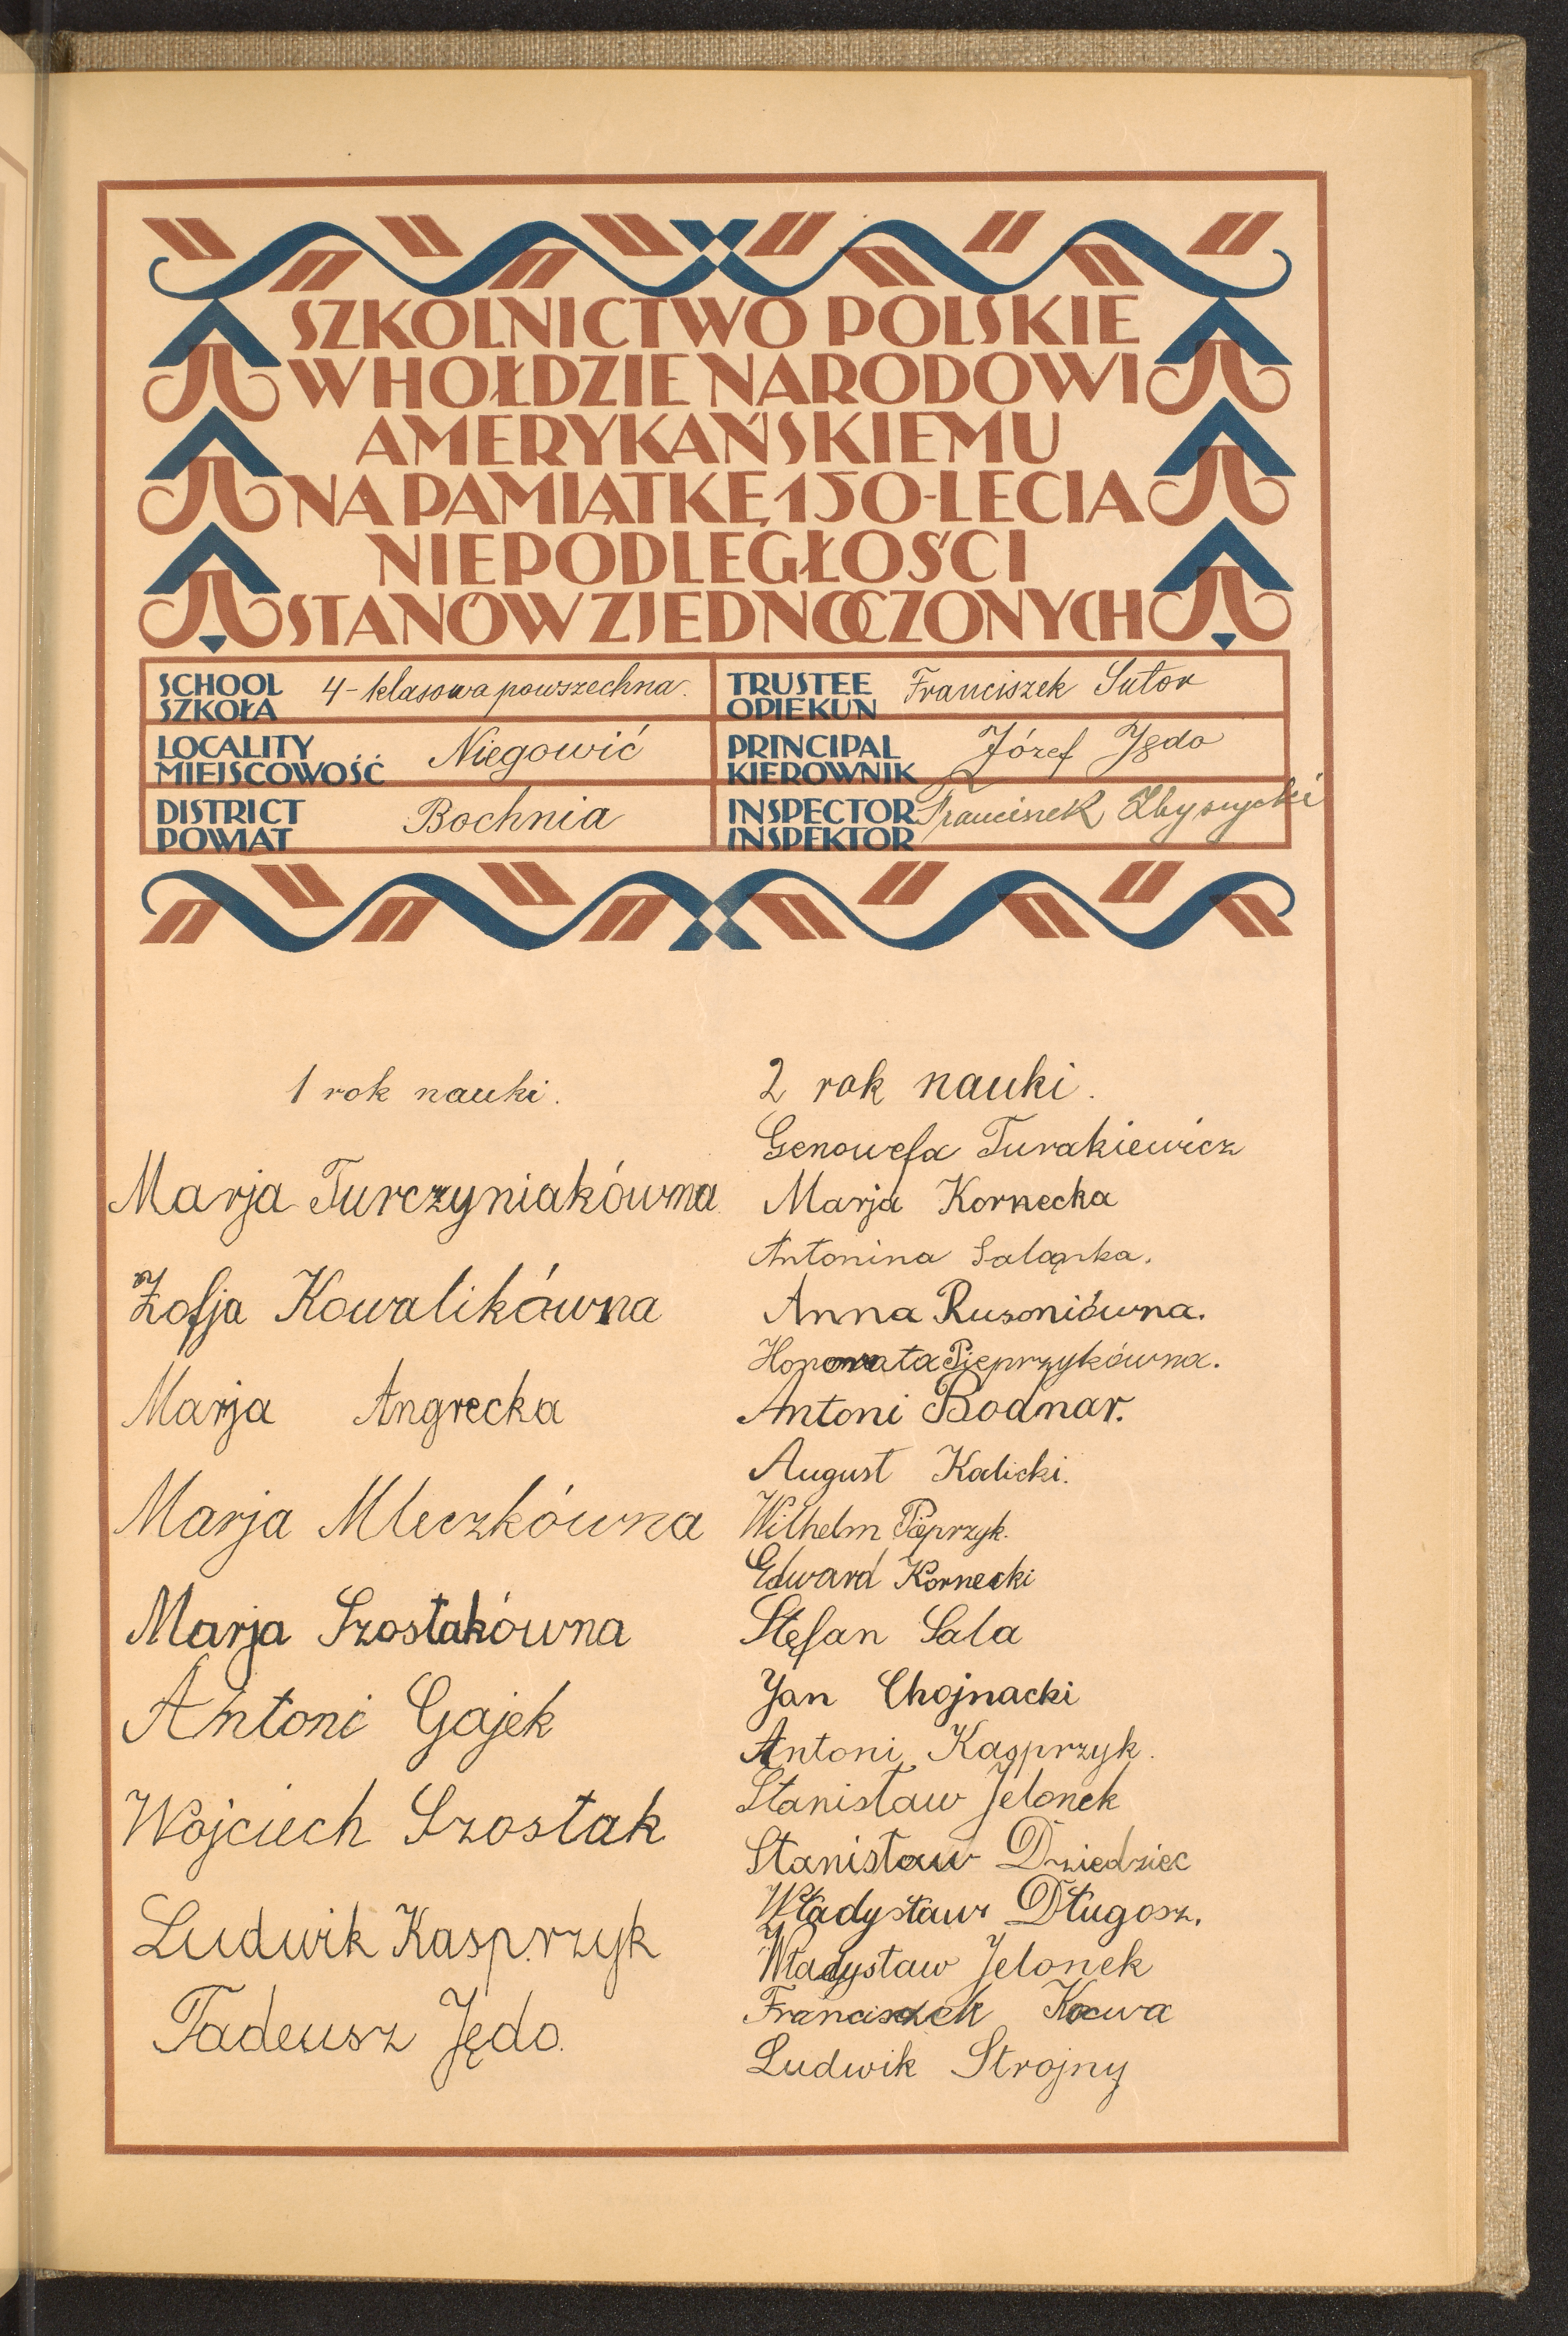 SZKOLNICTWO POLSKIE
W HOŁDZIE NARODOWI
AMERYKAŃSKIEMU
NA PAMIĄTKĘ 150-LECIA
NIEPODLEGŁOŚCI
STANÓW ZJEDNOCZONYCH
SCHOOL
SZKOŁA
4-klasowa powszechna.
TRUSTEE
OPIEKUN
Franciszek Sutor
LOCALITY
MIEJSCOWOŚĆ
Niegowić
PRINCIPAL
KIEROWNIK
Józef Jędo
DISTRICT
POWIAT
Bochnia
INSPECTOR
INSPEKTOR
Franciszek
1 rok nauki.
Marja Turczyniakówna
Zofja Kowalikówna
Marja Angrecka
Marja Mleczkówna
Marja Szostakówna
Antoni Gajek
Wojciech Szostak
Ludwik Kasprzyk
Tadeusz Jędo.
2 rok nauki.
Genowefa Turakiewicz
Marja Kornecka
Antonina Salanka.
Anna Rusoniówna.
Honorata Pieprzykówna.
Antoni Bodnar.
August Kalicki.
Wilhelm Pieprzyk.
Edward Kornecki
Stefan Sala
Jan Chojnacki
Antoni Kasprzyk.
Stanisław Jelonek
Stanisław Dziedziec
Władysław Długosz.
Władysław Jelonek
Franciszek
Ludwik Strojny